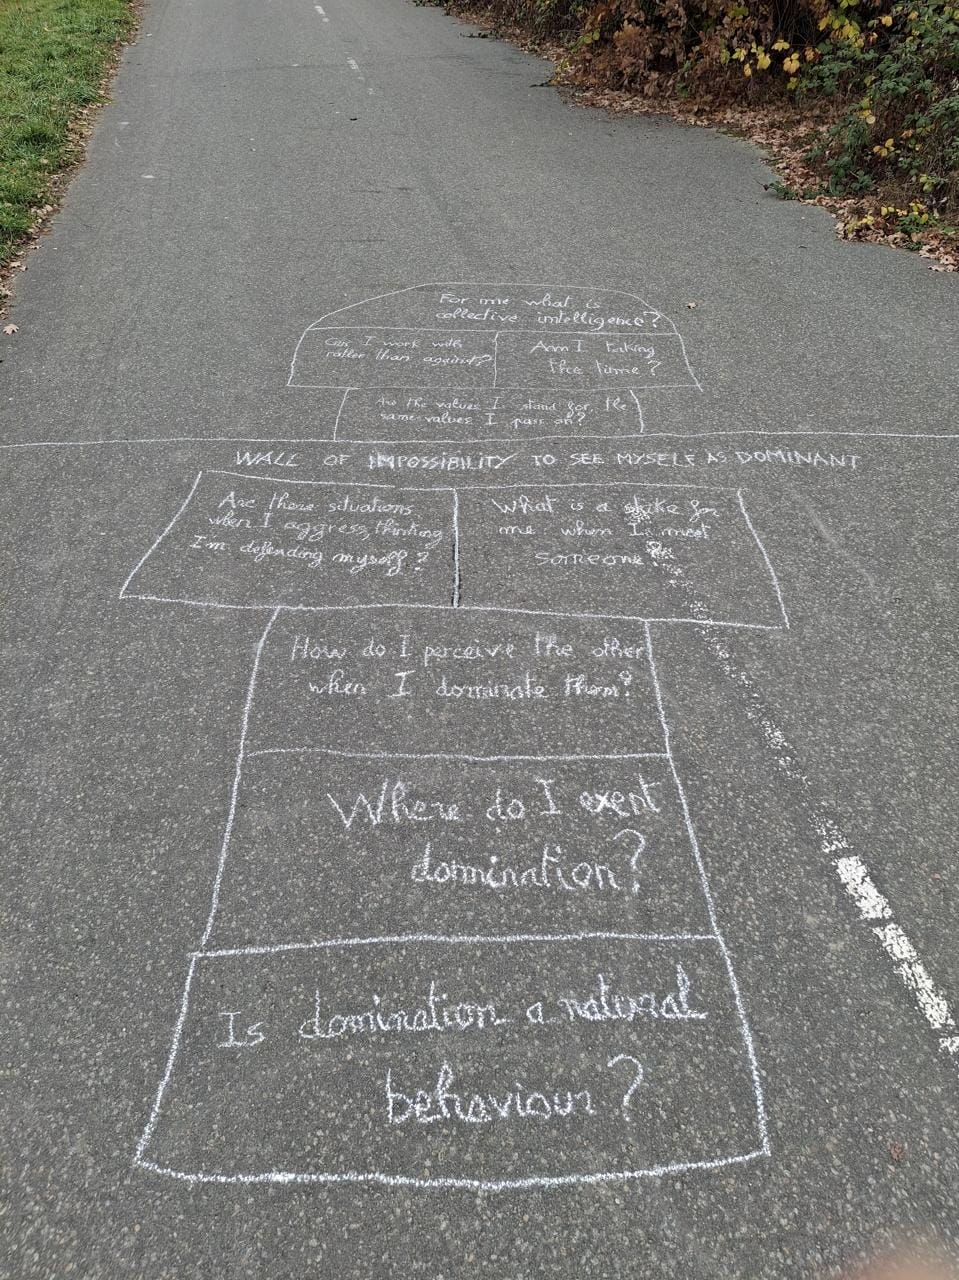 For me what is
collective intelligence?
Can I work with
rather than against?
Am I taking
the time?
Are the values I stand for, the
same values I pass on?
WALL OF IMPOSSIBILITY TO SEE MYSELF AS DOMINANT
Are there situations
when I aggress, thinking
I'm defending myself?
What is a stake for
me when I meet
someone?
How do I perceive the other
when I dominate them?
Where do I exert
domination?
Is domination a natural
behaviour?